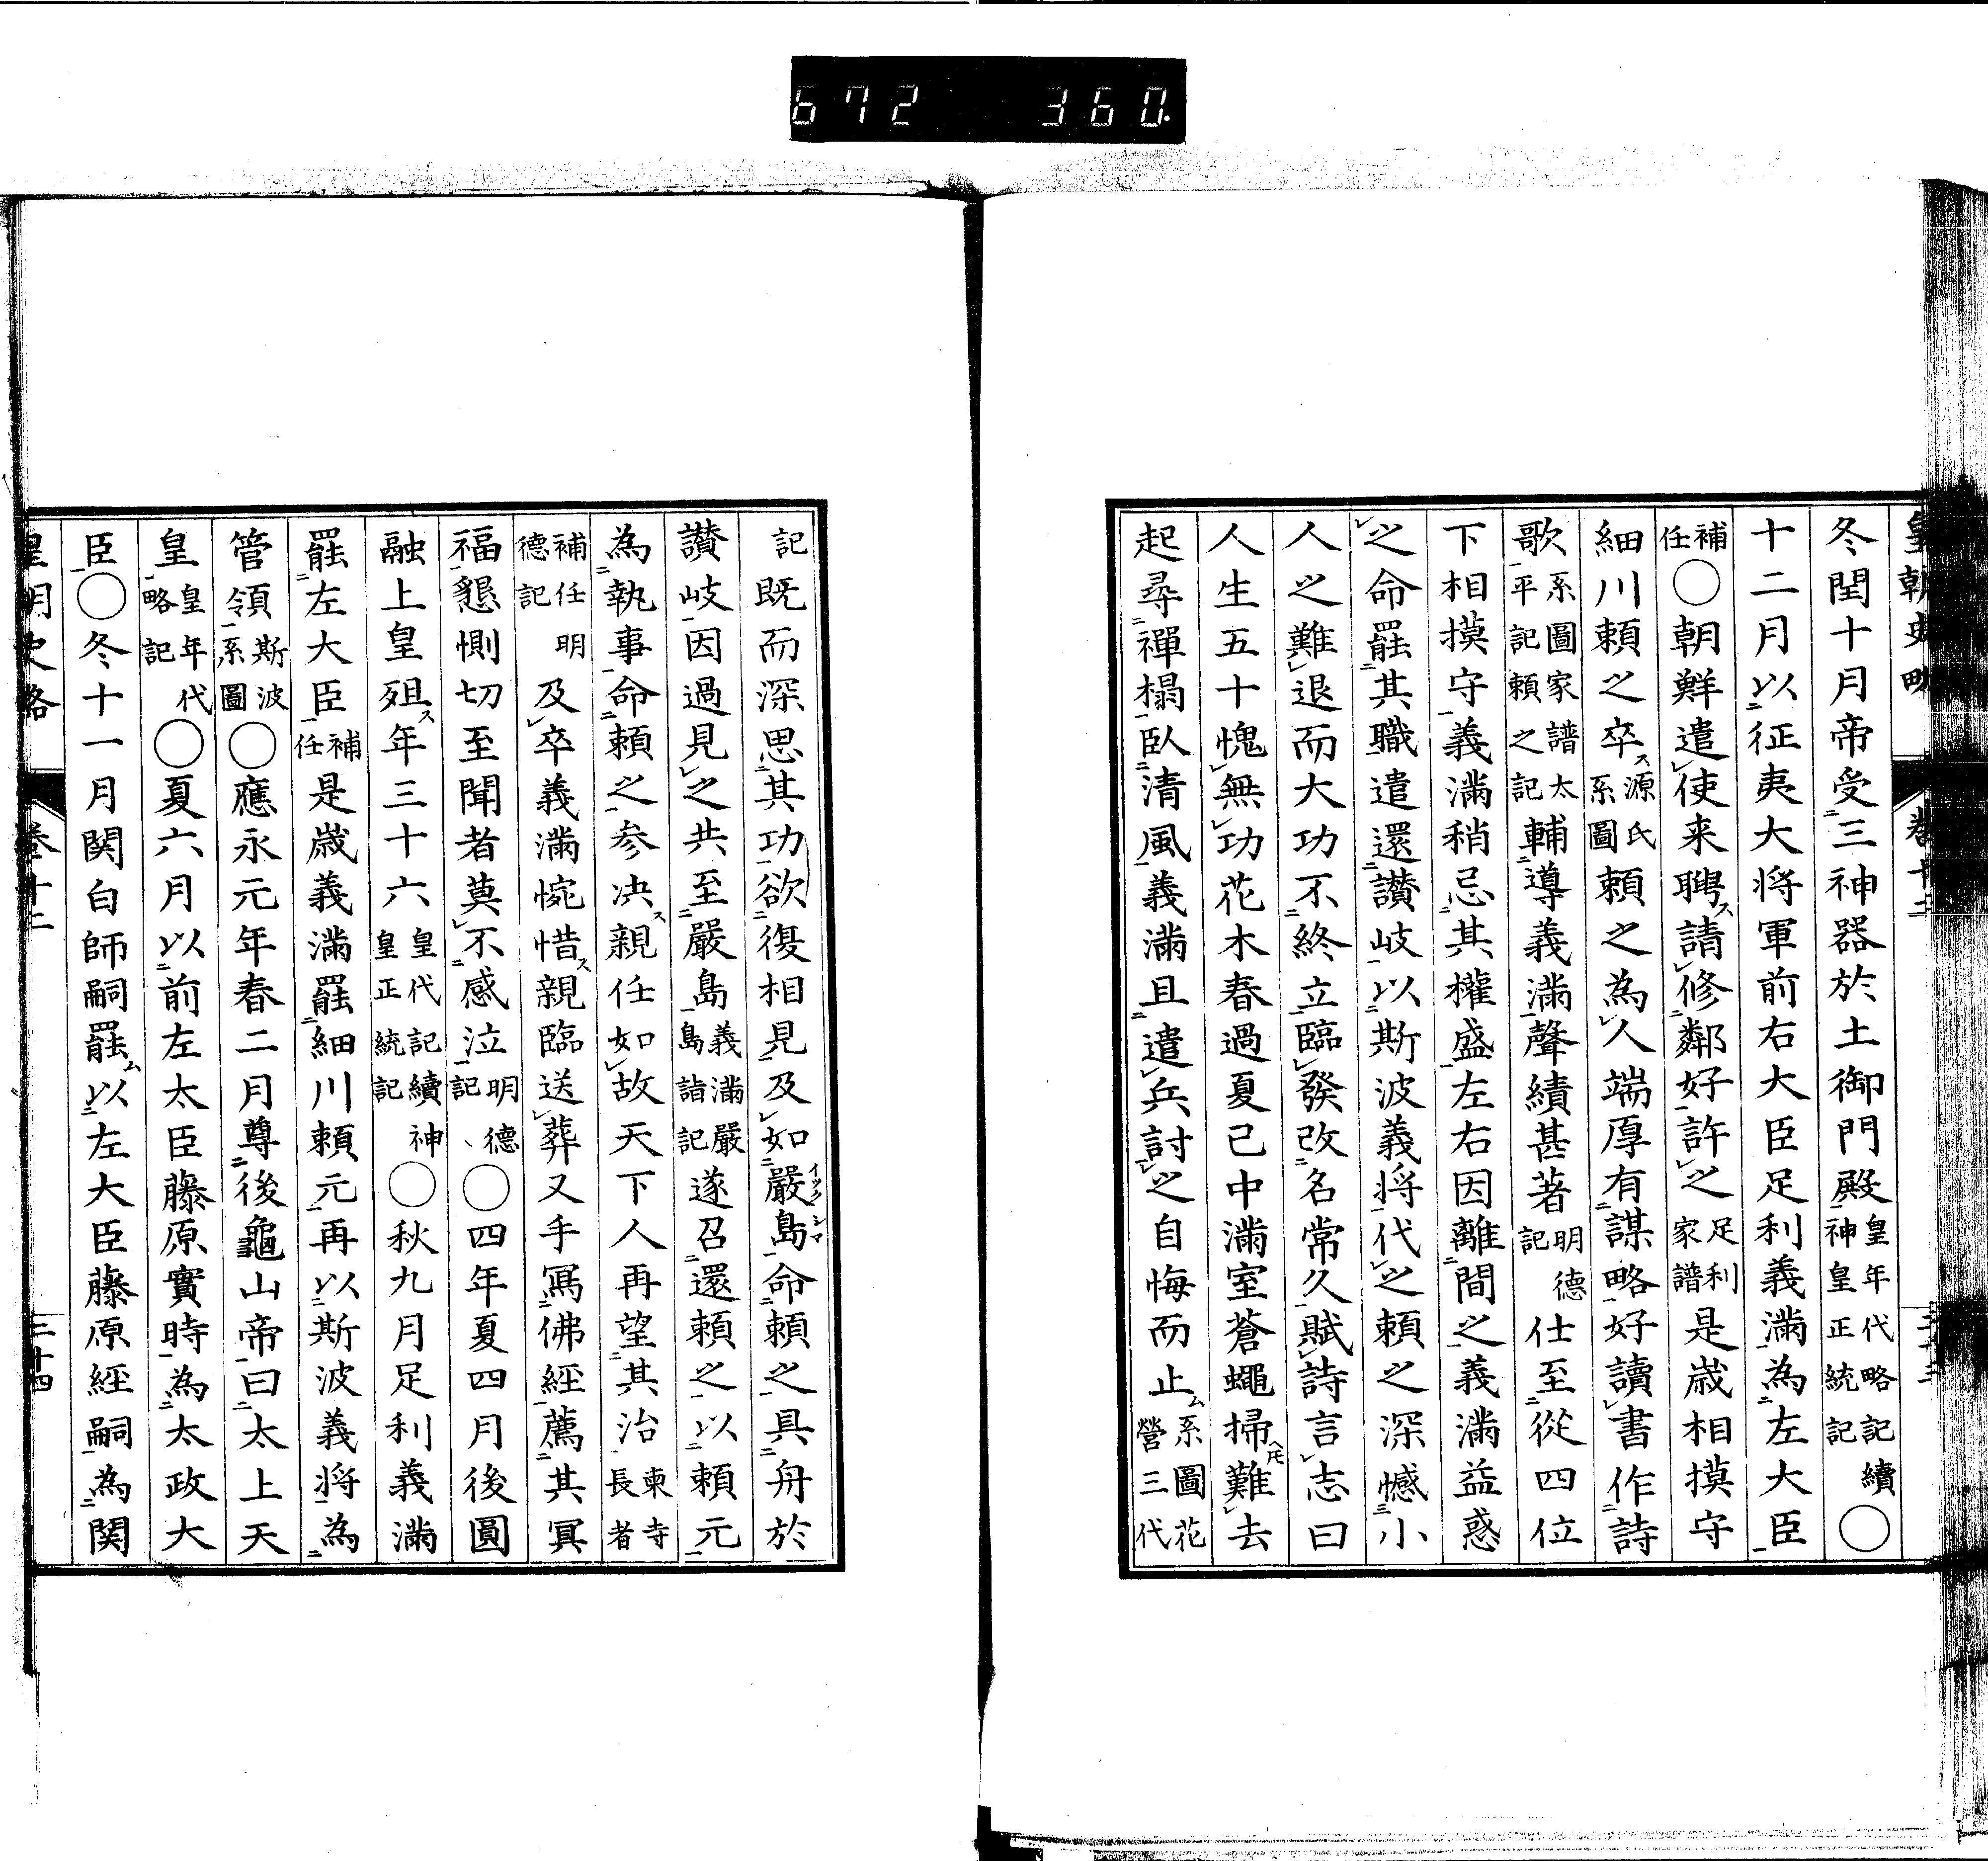 672 360
皇朝史略 卷十二
冬閏十月帝受三神器於土御門殿皇年代略記續神皇正統記〇
十二月以征夷大将軍前右大臣足利義滿為左大臣
補任〇朝鮮遣使来聘ス請修鄰好許之足利家譜是歳相摸守
細川頼之卒ス源氏系圖頼之為人端厚有謀略好讀書作詩
歌系圖家譜太平記頼之記輔導義滿聲績甚著明德記仕至從四位
下相摸守義滿稍忌其權盛左右因離間之義滿益惑
之命罷其職遣還讃岐以斯波義将代之頼之深憾小
人之難退而大功不終立臨發改名常久賦詩言志曰
人生五十愧無功花木春過夏已中滿室蒼蠅掃ヘ𪜈難去
起尋禪榻臥清風義滿且遣兵討之自悔而止ム系圖花營三代
記既而深思其功欲復相見及如嚴島イツクシマ命頼之具舟於
讃岐因過見之共至嚴島義滿嚴島詣記遂召還頼之以頼元
為執事命頼之参决ス親任如故天下人再望其治東寺長者
補任明德記及卒義滿惋惜ス親臨送葬又手寫佛經薦其冥
福懇惻切至聞者莫不感泣明德記、〇四年夏四月後圓
融上皇殂ス年三十六皇代記續神皇正統記〇秋九月足利義滿
罷左大臣補任是歳義滿罷細川頼元再以斯波義将為
管領斯波系圖〇應永元年春二月尊後龜山帝曰太上天
皇皇年代略記〇夏六月以前左太臣藤原實時為太政大
臣〇冬十一月関白師嗣罷ム以左大臣藤原經嗣為関
皇朝史略 卷十二 三十四